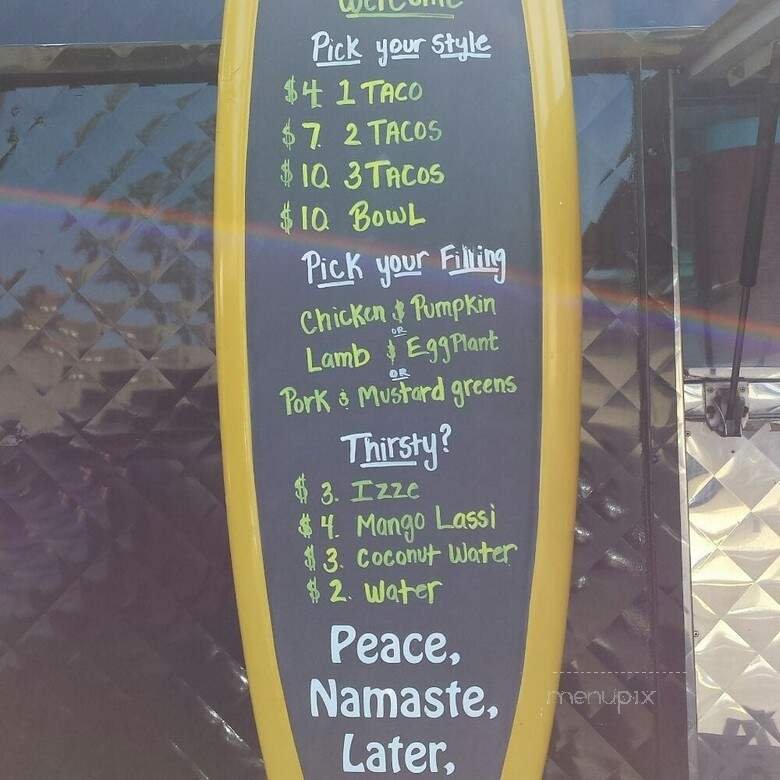 Welcome
Pick your Style
$4 1 TACO
$7. 2 TACOS
$10. 3 TACOS
$10. BOWL
Pick your Filling
Chicken & Pumpkin
OR
Lamb & EggPlant
OR
Pork & Mustard greens
Thirsty?
$3. Izze
$4. Mango Lassi
$3. Coconut Water
$2. Water
Peace,
Namaste,
Later,
menupix